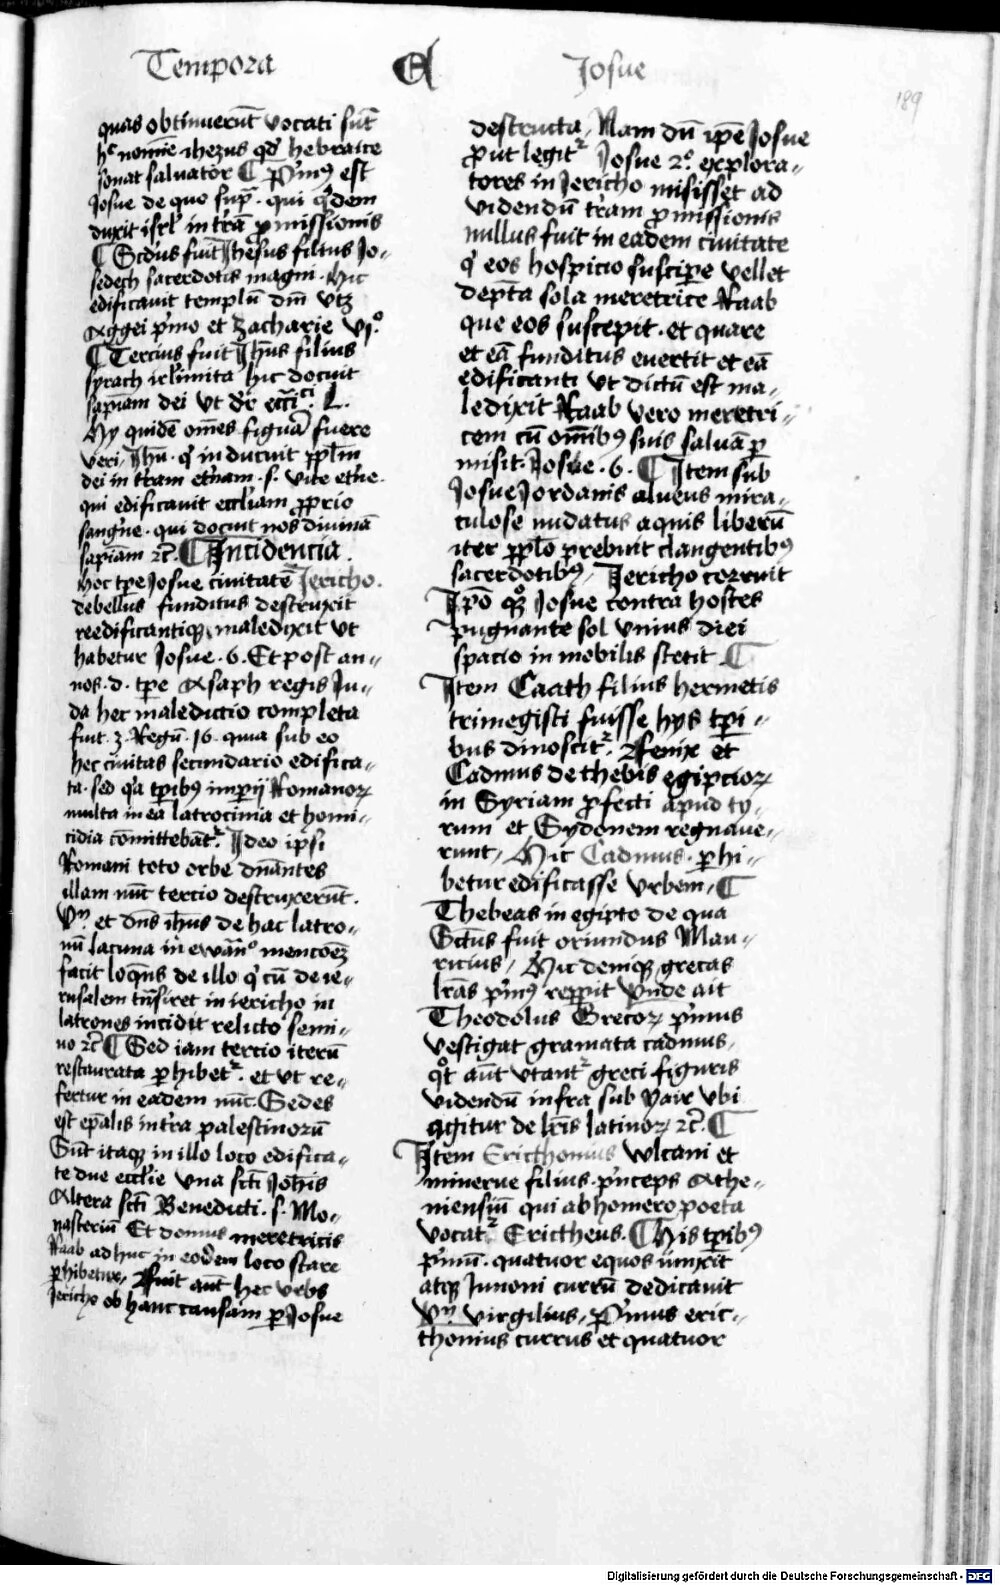 Tempora A Josue
189
quas obtinuerūt vocati sūt
hͦ nomīe ihezus qd' hebraice
sonat saluator ¶ P'mꝰ est
Josue de quo supͣ . qui q'dem
duxit isrl' in trā ꝓmissionis
¶ Scd'us fuit Jhesus filius Jo-
sedech sacerdotis magni . hic
edificauit templū dn̄i vtꝫ
Aggei p'mo et zacharie vi.ͦ
¶ Tercius fuit Jhūs filius
syrach irl'imita hic docuit
sapīam dei vt d'r ecc'ci . L.
Hy quidē om̄es figuā fuere
veri Jhū . q' induxit ppl'm
dei in trām et'nam . s. vite et'ne .
qui edificauit eccl'iam ꝓprio
sangⁱne . qui docuit nos diuinā
sapīam ⁊c̄ . ¶ Incidencia .
hoc tp̄e Josue ciuitatē Jericho .
debellās funditus destruxit
reedificantiqꝫ maledixit vt
habetur Josue . 6 . Et post an-
nos . d . tp̄e Asaph regis Ju-
da hec maledictio completa
fuit . 3 . Regū . 16 . quia sub eo
hec ciuitas secundario edifica-
ta . sed q'a tp̄ibꝰ imp̄ij Romanoꝝ
multa in ea latrocinia et homi-
cidia cōmittebāt' . Ideo ipsi
Romani toto orbe dn̄antes
illam nūc tercio destruxerūt .
Vn̄ et dn̄s ih̄us de hac latro-
nū lacuna in ewānͦ mencōeꝫ
facit loqn̄s de illo q' cū de ie-
rusalem trāsiret in iericho in
latrones incidit relicto semi-
uo ⁊c̄ ¶ Sed iam tercio iterū
restaurata ꝑhibet' . et vt re-
fertur in eadem nūc Sedes
est ep̄alis in t'ra palestinorū
Sūt itaqꝫ in illo loco edifica-
te due eccl'ie vna scti Joh̄is
Altera scti Benedicti . s. Mo-
nasteriū Et domus meretricis
Raab adhuc in eodem loco stare
ꝑhibetur, Fuit aūt hec vrbs
Jericho ob hanc causam ꝑ Josue
destructa, Nam dū ip̄e Josue
ꝓut legit' Josue 2ͦ . explora-
tores in Jericho misisset ad
videndū tr̄am ꝓmissionis
nullus fuit in eadem ciuitate
q' eos hospicio suscipe vellet
dept̄a sola meretrice Raab
que eos suscepit . et quare
et eā funditus euertit et eā
edificanti vt dictū est ma-
ledixit Raab vero meretri-
cem cū om̄ibꝰ suis saluā ꝑ
misit . Josue . 6 . ¶ Item sub
Josue Jordanis alueus mira-
culose nudatus aquis liberū
iter ppl'o prebuit clangentibꝰ
sacerdotibꝰ, Jericho corruit
Ip̄o qͦꝫ Josue contra hostes
pugnante sol vnius diei
spacio in mobilis stetit ¶
Item Caath filius hermetis
trimegisti fuisse hys tp̄i-
bus dinoscit' . Fenix et
Cadmus de thebis egipcioꝝ
in Syriam ꝓfecti apud ty-
rum et Sydonem regnaue-
runt, Hic Cadmus . ꝑhi-
betur edificasse vrbem, ¶
Thebeas in egipto de qua
Sctūs fuit oriundus Mau-
ricius, Hic deniqꝫ grecas
lr̄as p'mꝰ repperit vnde ait
Theodolus Grecoꝝ p'mus
vestigat gramata cadmus,
qͦt aūt vtant' greci figuris
videndū infra sub Yair vbi
agitur de lr̄is latinoꝝ ⁊c̄ . ¶
Item Ericthonius wlcani et
minerue filius . p'nceps Athe-
niensiū qui ab homero poeta
vocat' Erictheus . ¶ His tp̄ibꝰ
p'mū . quatuor equos iunxit
atqꝫ Junoni currū dedicauit
Vn̄ virgilius, P'mus eric-
thonius currus et quatuor
Digitalisierung gefördert durch die Deutsche Forschungsgemeinschaft - DFG